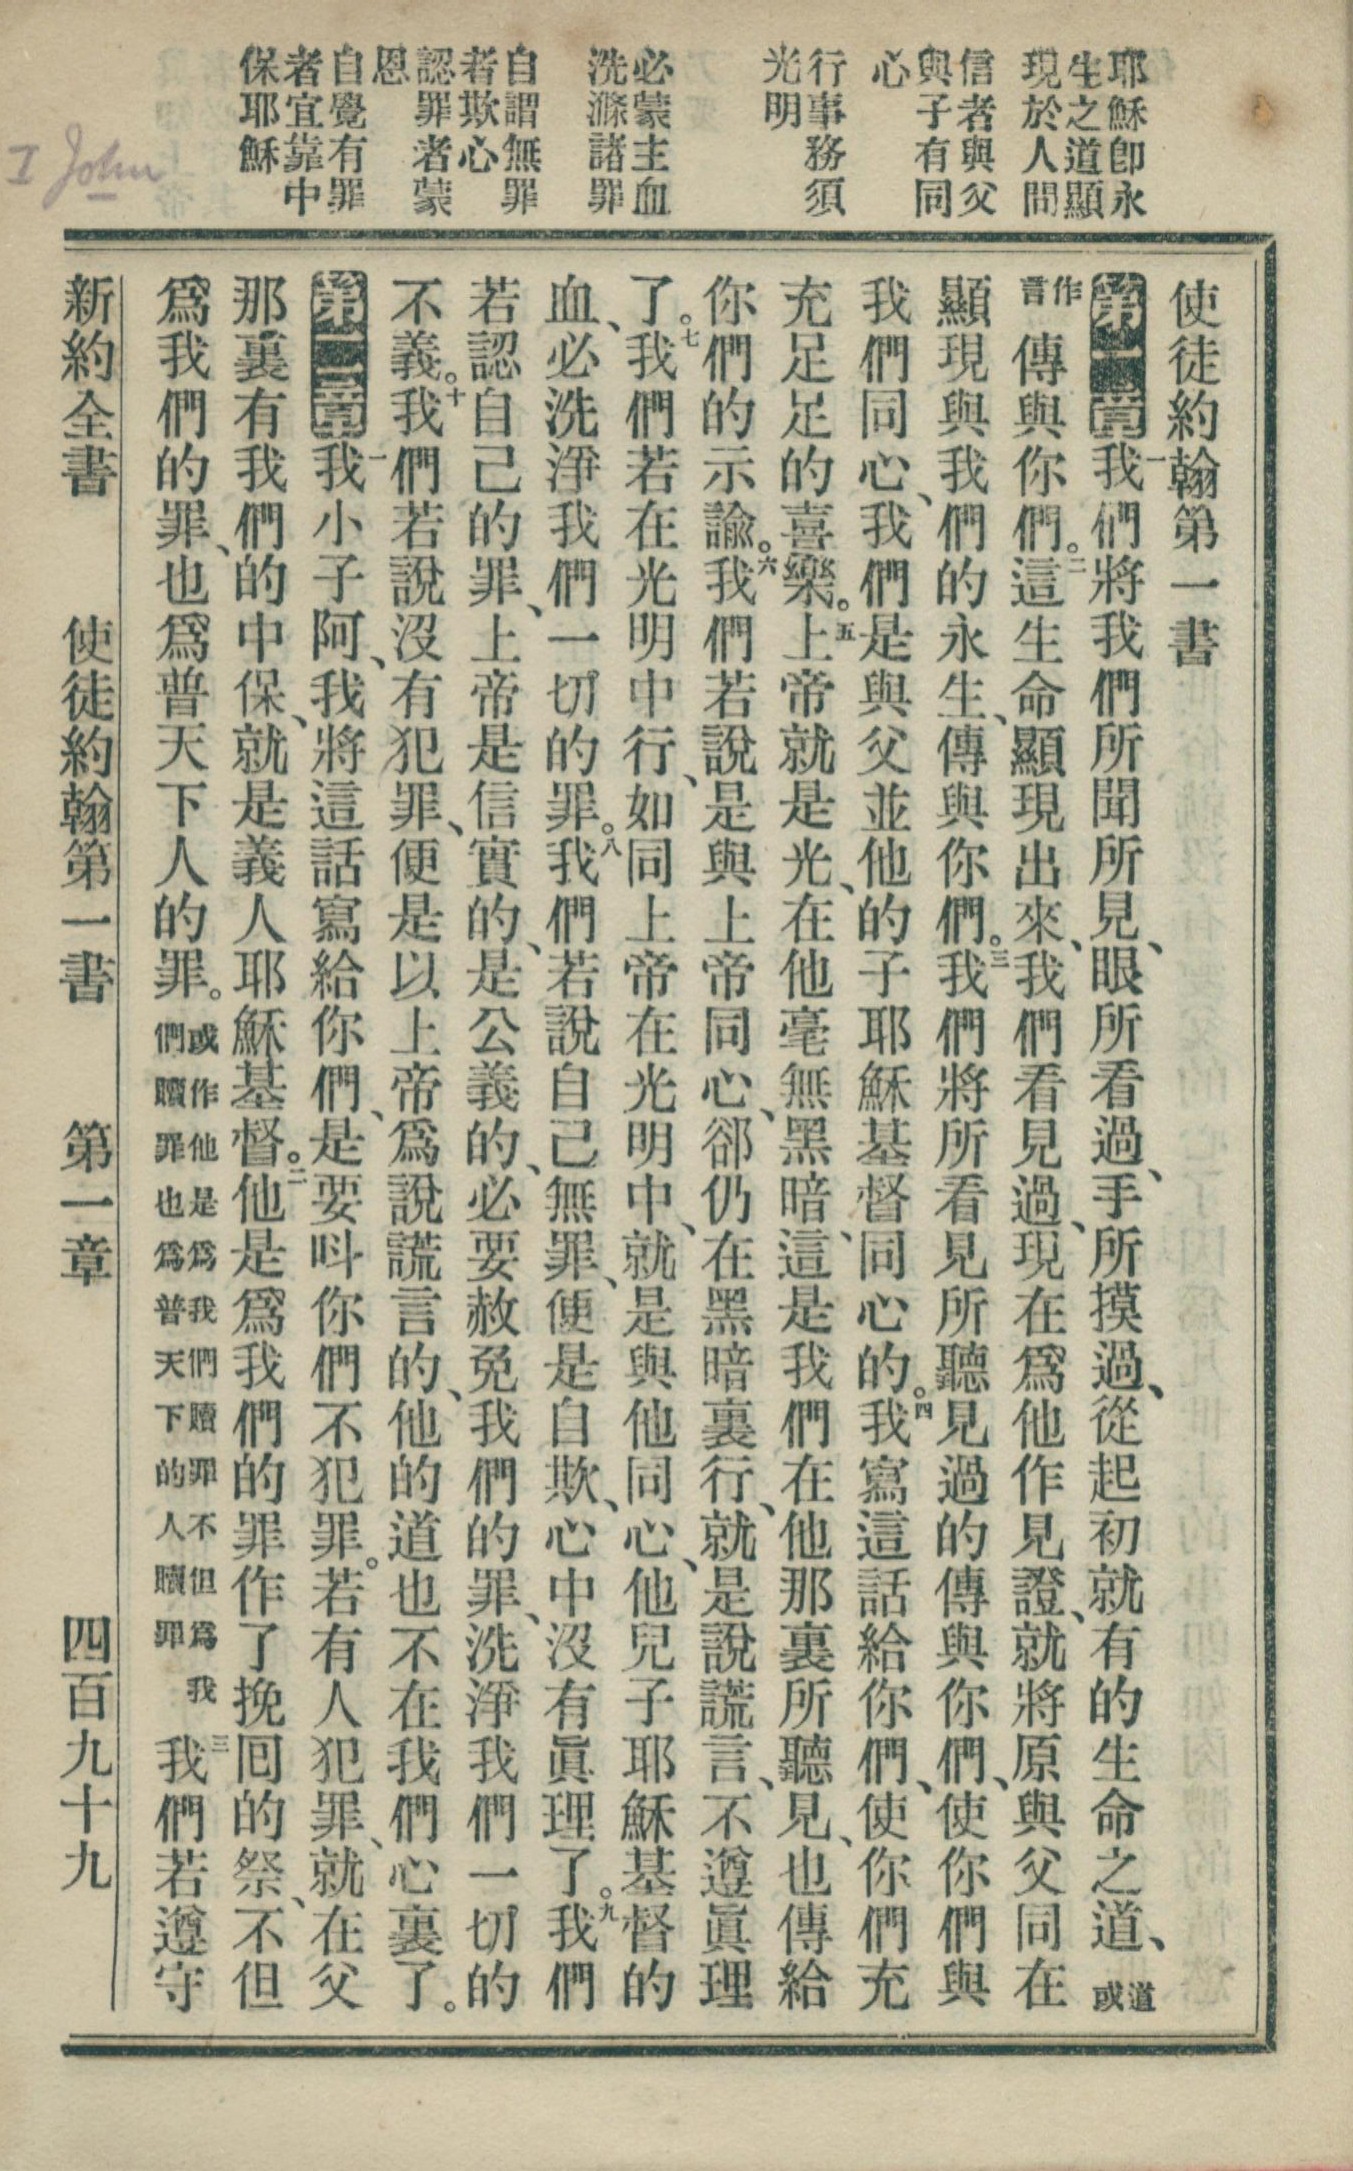 耶穌卽永
生之道顯
現於人間
信者與父
與子有同
心
行事務須
光明
必蒙主血
洗滌諸罪
自謂無罪
者欺心
認罪者蒙
恩
自覺有罪
者宜靠中
保耶穌
I John
使徒約翰第一書
第一章一我們將我們所聞所見、眼所看過、手所摸過、從起初就有的生命之道、道或
作言傳與你們。二這生命顯現出來、我們看見過、現在爲他作見證、就將原與父同在
顯現與我們的永生、傳與你們。三我們將所看見所聽見過的傳與你們、使你們與
我們同心、我們是與父並他的子耶穌基督同心的。四我寫這話給你們、使你們充
充足足的喜樂。五上帝就是光、在他毫無黑暗、這是我們在他那裏所聽見、也傳給
你們的示諭。六我們若說是與上帝同心、郤仍在黑暗裏行、就是說謊言、不遵眞理
了。七我們若在光明中行、如同上帝在光明中、就是與他同心、他兒子耶穌基督的
血、必洗淨我們一切的罪。八我們若說自己無罪、便是自欺、心中沒有眞理了。九我們
若認自己的罪、上帝是信實的、是公義的、必要赦免我們的罪、洗淨我們一切的
不義。十我們若說沒有犯罪、便是以上帝爲說謊言的、他的道也不在我們心裏了。
第二章一我小子阿、我將這話寫給你們、是要呌你們不犯罪。若有人犯罪、就在父
那裏有我們的中保、就是義人耶穌基督。二他是爲我們的罪作了挽囘的祭、不但
爲我們的罪、也爲普天下人的罪。或作他是爲我們贖罪不但爲我們贖罪也爲普天下的人贖罪三我們若遵守
新約全書 使徒約翰第一書 第一章 四百九十九